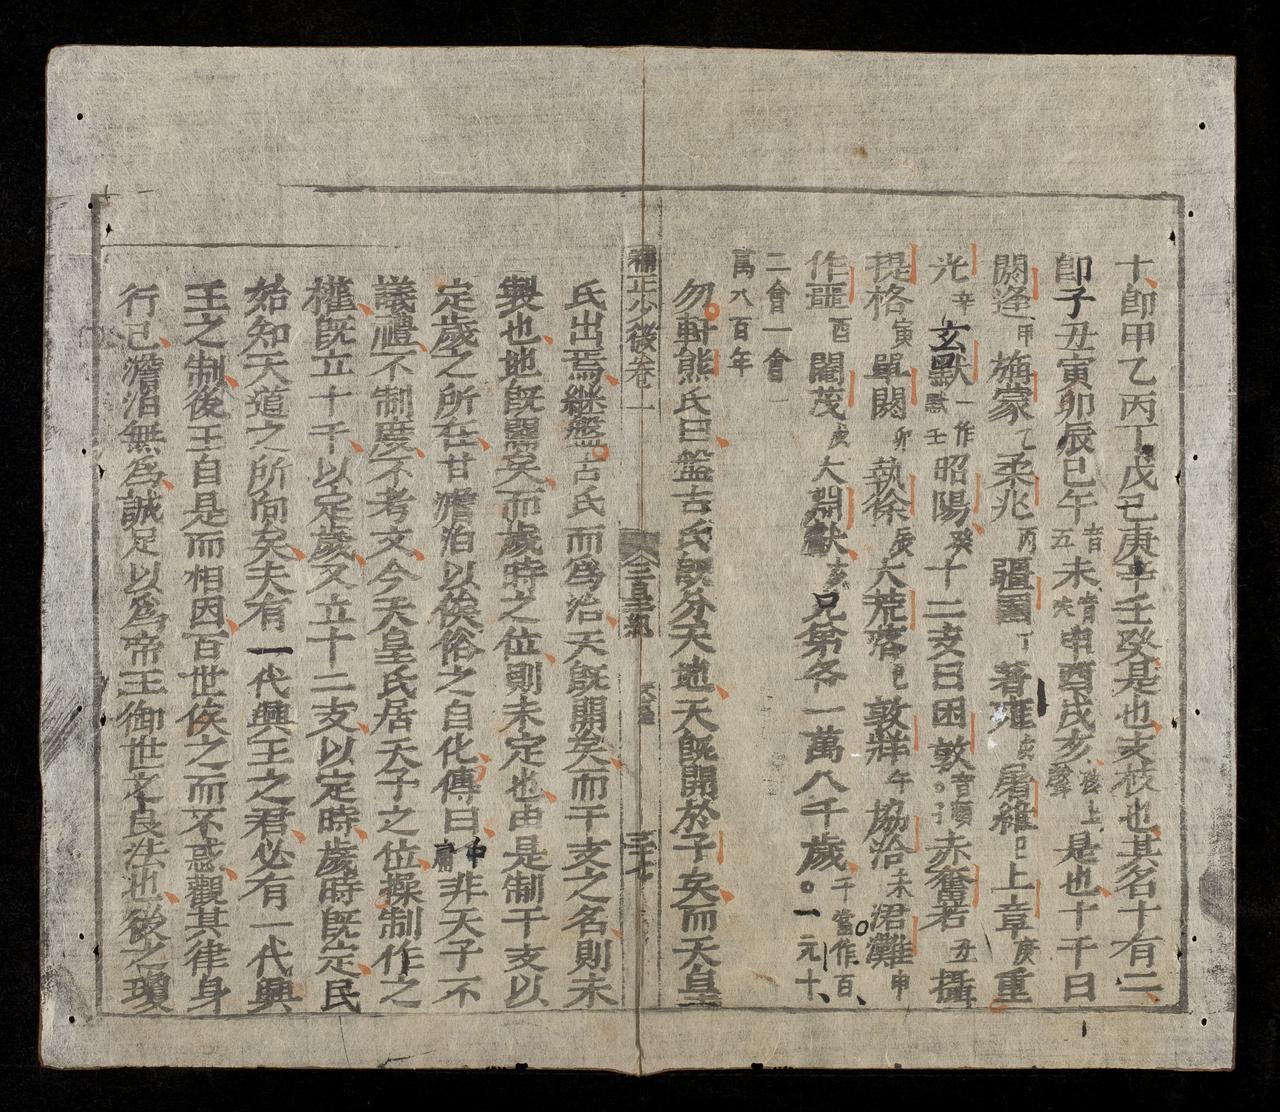 十、卽甲乙丙丁戊己庚辛壬癸是也、支枝也、其名十有二、
卽子丑寅卯辰巳午音五未申酉戌亥是也、十干曰
閼逢甲旃蒙乙柔兆丙疆圉丁著雍戊屠維己上章庚重
光辛玄黓一作默壬昭陽癸十二支曰困敦音頓子赤奮若丑攝
提格寅單閼卯執徐辰大荒落巳敦牂午協洽未涒灘申
作噩酉閹茂戌大淵獻亥兄弟各一萬八千歲。千當作百、一元十、
二會一會
萬八百年
勿軒熊氏曰、盤古氏旣分天地、天旣開於子矣、而天皇
補正少微卷一
三皇紀
三十七
氏出焉、継盤古氏而爲治、天旣開矣、而干支之名則未
製也、地旣闢矣、而歲時之位、則未定也、由是制干支以
定歲之所在、甘澹泊以俟俗之自化、傳曰、中庸非天子不
議禮、不制度、不考文、今天皇氏居天子之位、操制作之
權、旣立十干、以定歲、又立十二支、以定時、歲時旣定、民
始知天道之所向矣、夫有一代興王之君、必有一代興
王之制、後王自是而相因、百世俟之而不惑、觀其律身
行己、澹泊無爲、誠足以爲帝王御世之良法也、後之瓊